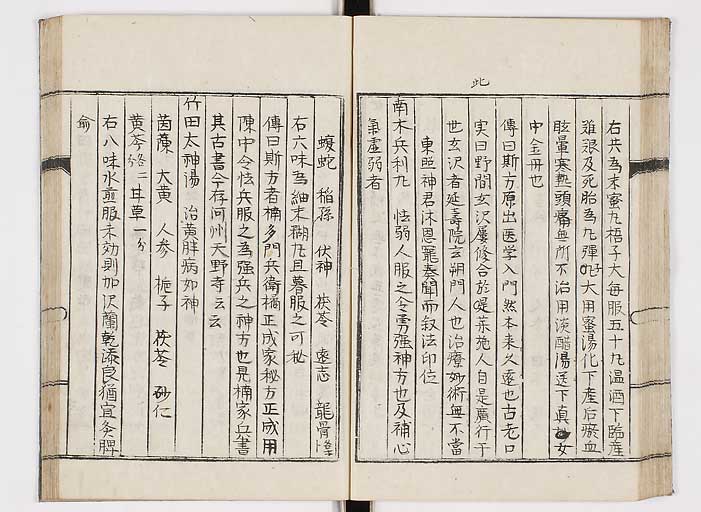 此
右共為末蜜丸梧子大每服五十丸温酒下臨産
艱難及死胎為丸彈子大用蜜湯化下産后瘀血
眩暈寒熱頭痛無所不治用淡醋湯送下真女
中金丹也
傳曰斯方原出医学入門然本来久遠也古老口
実曰野間玄沢屢修合於施人自是薦行于
世玄沢者延壽院玄朔門人也治療妙術無不當
東照神君沐恩寵奏聞而叙法印位
南木兵利丸　怯弱人服之令勇强神方也及補心
氣虚弱者
蝮蛇　稲孫　伏神　茯苓　遠志　龍骨
右六味為細末糊丸旦暮服之可秘
傳曰斯方者楠多門兵衛橘正成家秘方正成用
陳中令怯兵服之為强兵之神方也晃楠家丘書
其古書今存河州天野寺云云
竹田太神湯　治黄胖病如神
茵蔯　大黄　人参　梔子　茯苓　砂仁
黄芩　各二　甘草一分
右八味水煎服未効則加沢蘭乾漆良猶宜灸脾
俞